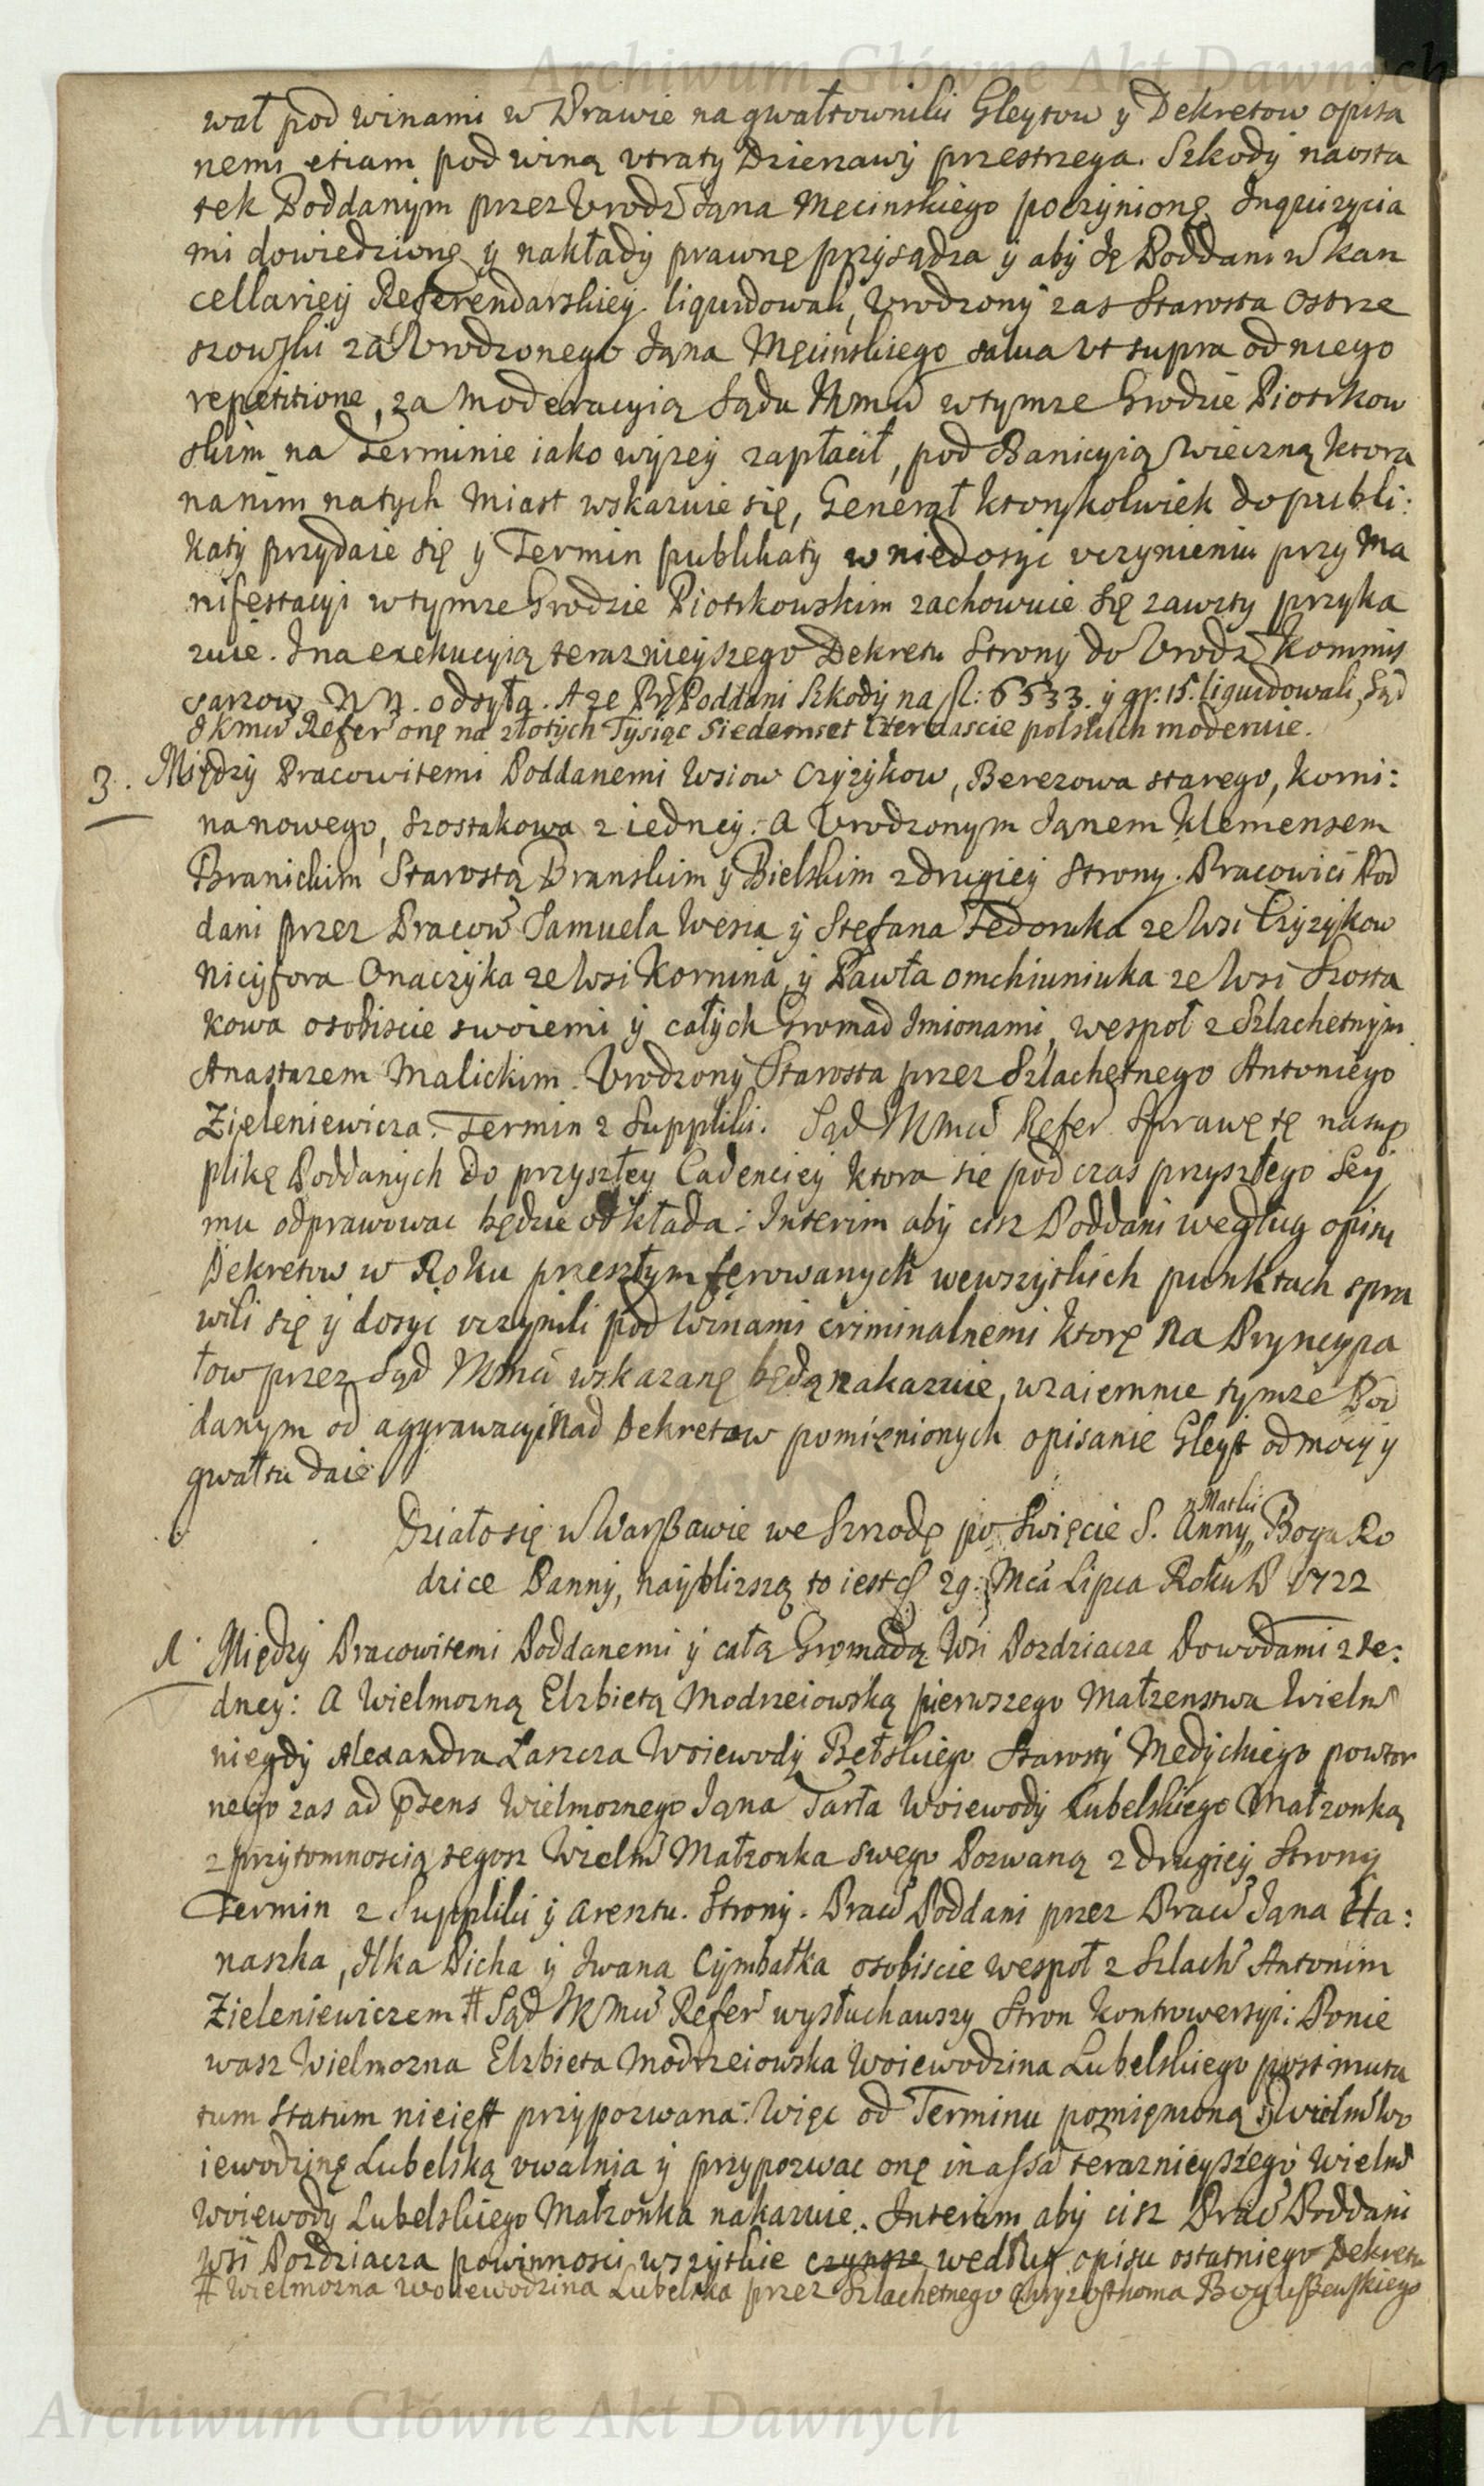 Archiwum Główne Akt Dawnych
wał pod winami w Prawie na gwałtowniki Gleytow y Dekretow opisa
nemi etiam pod winą vtraty Dzierzawy przestrzega. Szkody naosta
tek Poddanym przez Vrodz Jana Męcinskiego poczynionę, Inquizycia
mi dowiedzionę y nakłady prawnę przysądza y aby ię Poddani w kan
cellariey Referendarskiey liquidowali, Vrodzony zas Starosta Ostrze
szowski za Vrodzonego Jana Męcinskiego salua vt supra od niego
repetitione, za moderacyią Sądu JKmci w tymze Grodzie Piotrkow
skim na Terminie iako wyzey zapłacił, pod Banicyią wieczną ktora
na nim natych miast wskazuie się, Generał ktorykolwiek do publi:
katy przydaie się y Termin publikaty w niedosyc vczynieniu przy Ma
nifestacyi w tymze Grodzie Piotrkowskim zachowuie się zawzty przyka
zuie. Ina exekucyią terazniejszego Dekretu Strony do Vrodz Kommis
sarzow NN. odsyła. A ze PP Poddani Szkody na fl: 6533. y gr: 15. liquidowali, Sąd
JKmci Refer onę na złotych Tysiąc Siedemset czternascie polskich moderuie.
3. Między Pracowitemi Poddanemi Wsiow Czyzykow, Berezowa starego, Korni:
na nowego, Szostakowa z iedney: a Vrodzonym Janem Klemensem
Branickim Starostą Branskim y Bielskim z drugiey Strony. Pracowici Pod
dani przez Pracow Samuela Wesia y Stefana Fedoruka ze Wsi Czyzykow
Nicyfora Onaczyka ze Wsi Kornina, y Pawła Omchiuniuka ze Wsi Szosta
kowa osobiscie swoiemi y całych Gromad Imionami, wespoł z Szlachetnym
Anastazem Malickim. Vrodzony Starosta przez Szlachetnego Antoniego
Zieleniewicza. Termin z Suppliki. Sąd JKmci Refer Sprawę tę na sup
plikę Poddanych do przyszłey Cadenciey ktora sie pod czas przyszłego Sey
mu odprawowac będzie odkłada: Interim aby cisz Poddani według opisu
Dekretow w Roku przeszłym ferowanych we wszytkich punktach spra
wili się y dosyc vczynili pod winami criminalnemi ktorę na Pryncypa
łow przez Sąd JKmci wskazanę będą nakazuie, wzaiemnie tymze Pod
danym od aggrawacyi nad Dekretow pomienionych opisanie Gleyt od mocy y
gwałtu daie
Działo się w Warszawie we Szrzodę po Swięcie S. Anny Matki Boga Ro
dzice Panny, nayblizszą to iest 29: Mca Lipca Roku P 1722
1 Między Pracowitemi Poddanemi y całą Gromadą Wsi Pozdziacza Powodami z ie:
dney: a Wielmozną Elzbietą Modrzeiowską pierwszego Małzenstwa Wielm
niegdy Alexandra Łaszcza Woiewody Bełskiego Starosty Medyckiego powtor
nego zas ad psens Wielmoznego Jana Tarła Woiewody Lubelskiego Małzonką
z przytomnoscią tegosz Wielm Małzonka swego Pozwaną z drugiey Strony
Termin z Suppliki y aresztu. Strony. Prac Poddani przez Prac Jana Ha:
naszka, Ilka Picha y Iwana Cymbałka osobiscie wespoł z Szlach Antonim
Zieleniewiczem # Sąd JKmci Refer wysłuchawszy Stron Kontrowersyi: Ponie
wasz Wielmozna Elzbieta Modrzeiowska Woiewodzina Lubelskiego post muta
tum statum nie iest przypozwana: Więc od Terminu pomienioną Wielm Wo
iewodzinę Lubelską vwalnia y przypozwac onę in assa teraznieyszego Wielm
Woiewody Lubelskiego Małzonka nakazuie. Interim aby cisz Prac Poddani
Wsi Pozdziacza powinnosci wszytkie czynsze według opisu ostatniego Dekretu
# Wielmozna Woiewodzina Lubelska przez Szlachetnego Chryzosthoma Boguszewskiego
Archiwum Główne Akt Dawnych